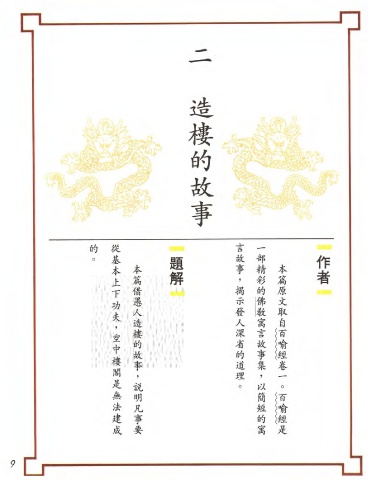 二　造樓的故事
作者
本篇原文取自百喻經卷一。百喻經是
一部精彩的佛教寓言故事集，以簡短的寓
言故事，揭示發人深省的道理。
題解
本篇借愚人造樓的故事，說明凡事要
從基本上下功夫，空中樓閣是無法建成
的。
9